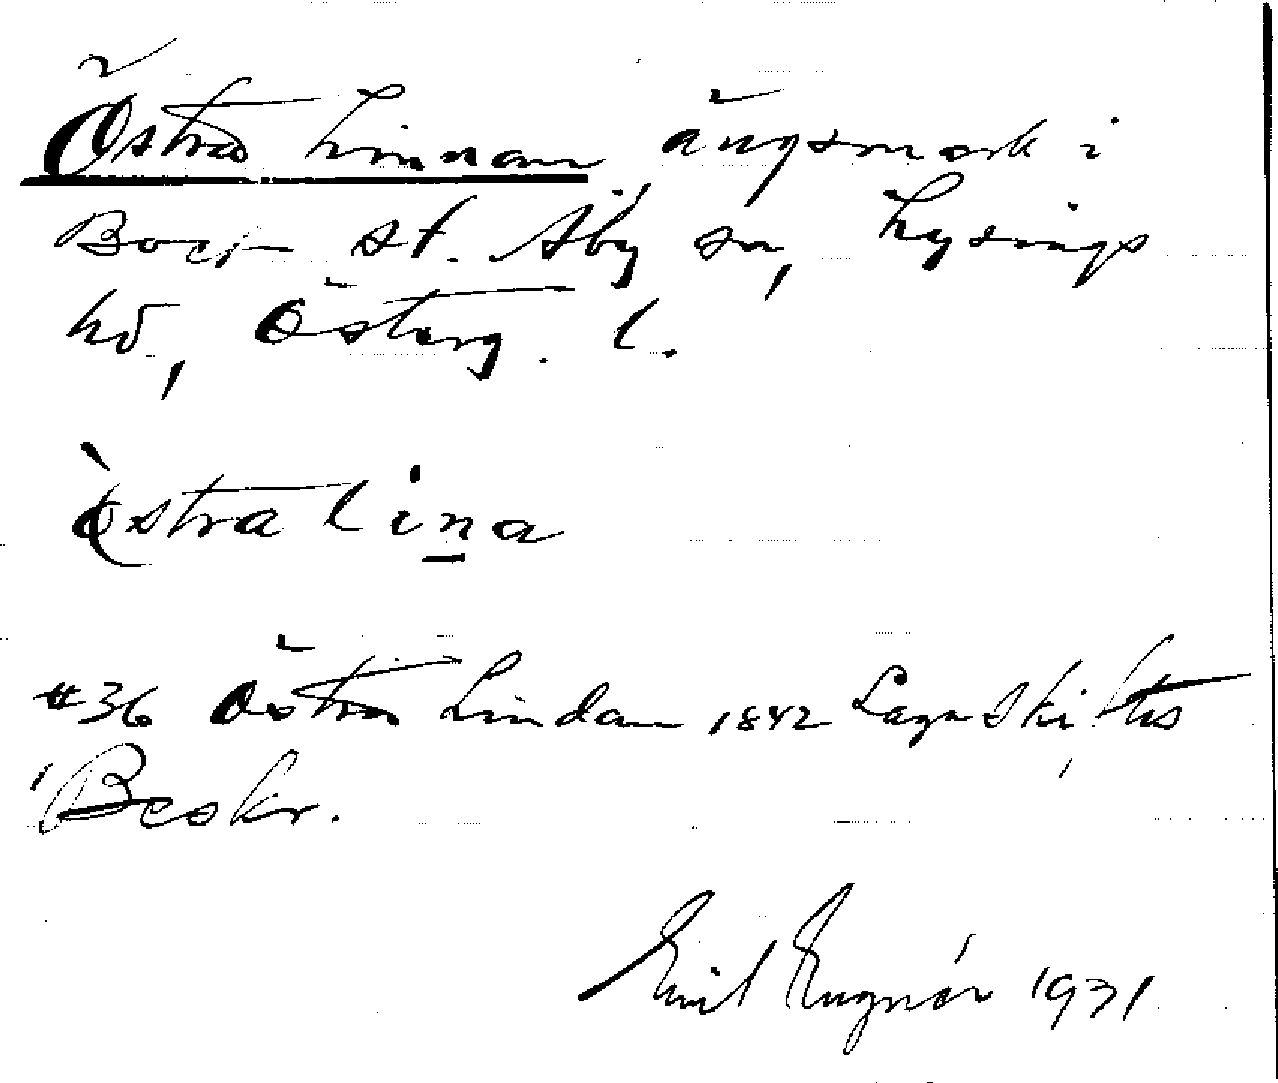 Östra Linnan, ängsmark i
Borg st. Åby sn, Lysings
hd, Österg. l.
östra lina
#36 Östra Lindan 1842 Laga Skiftes
Beskr.
Emil Rugnér 1931